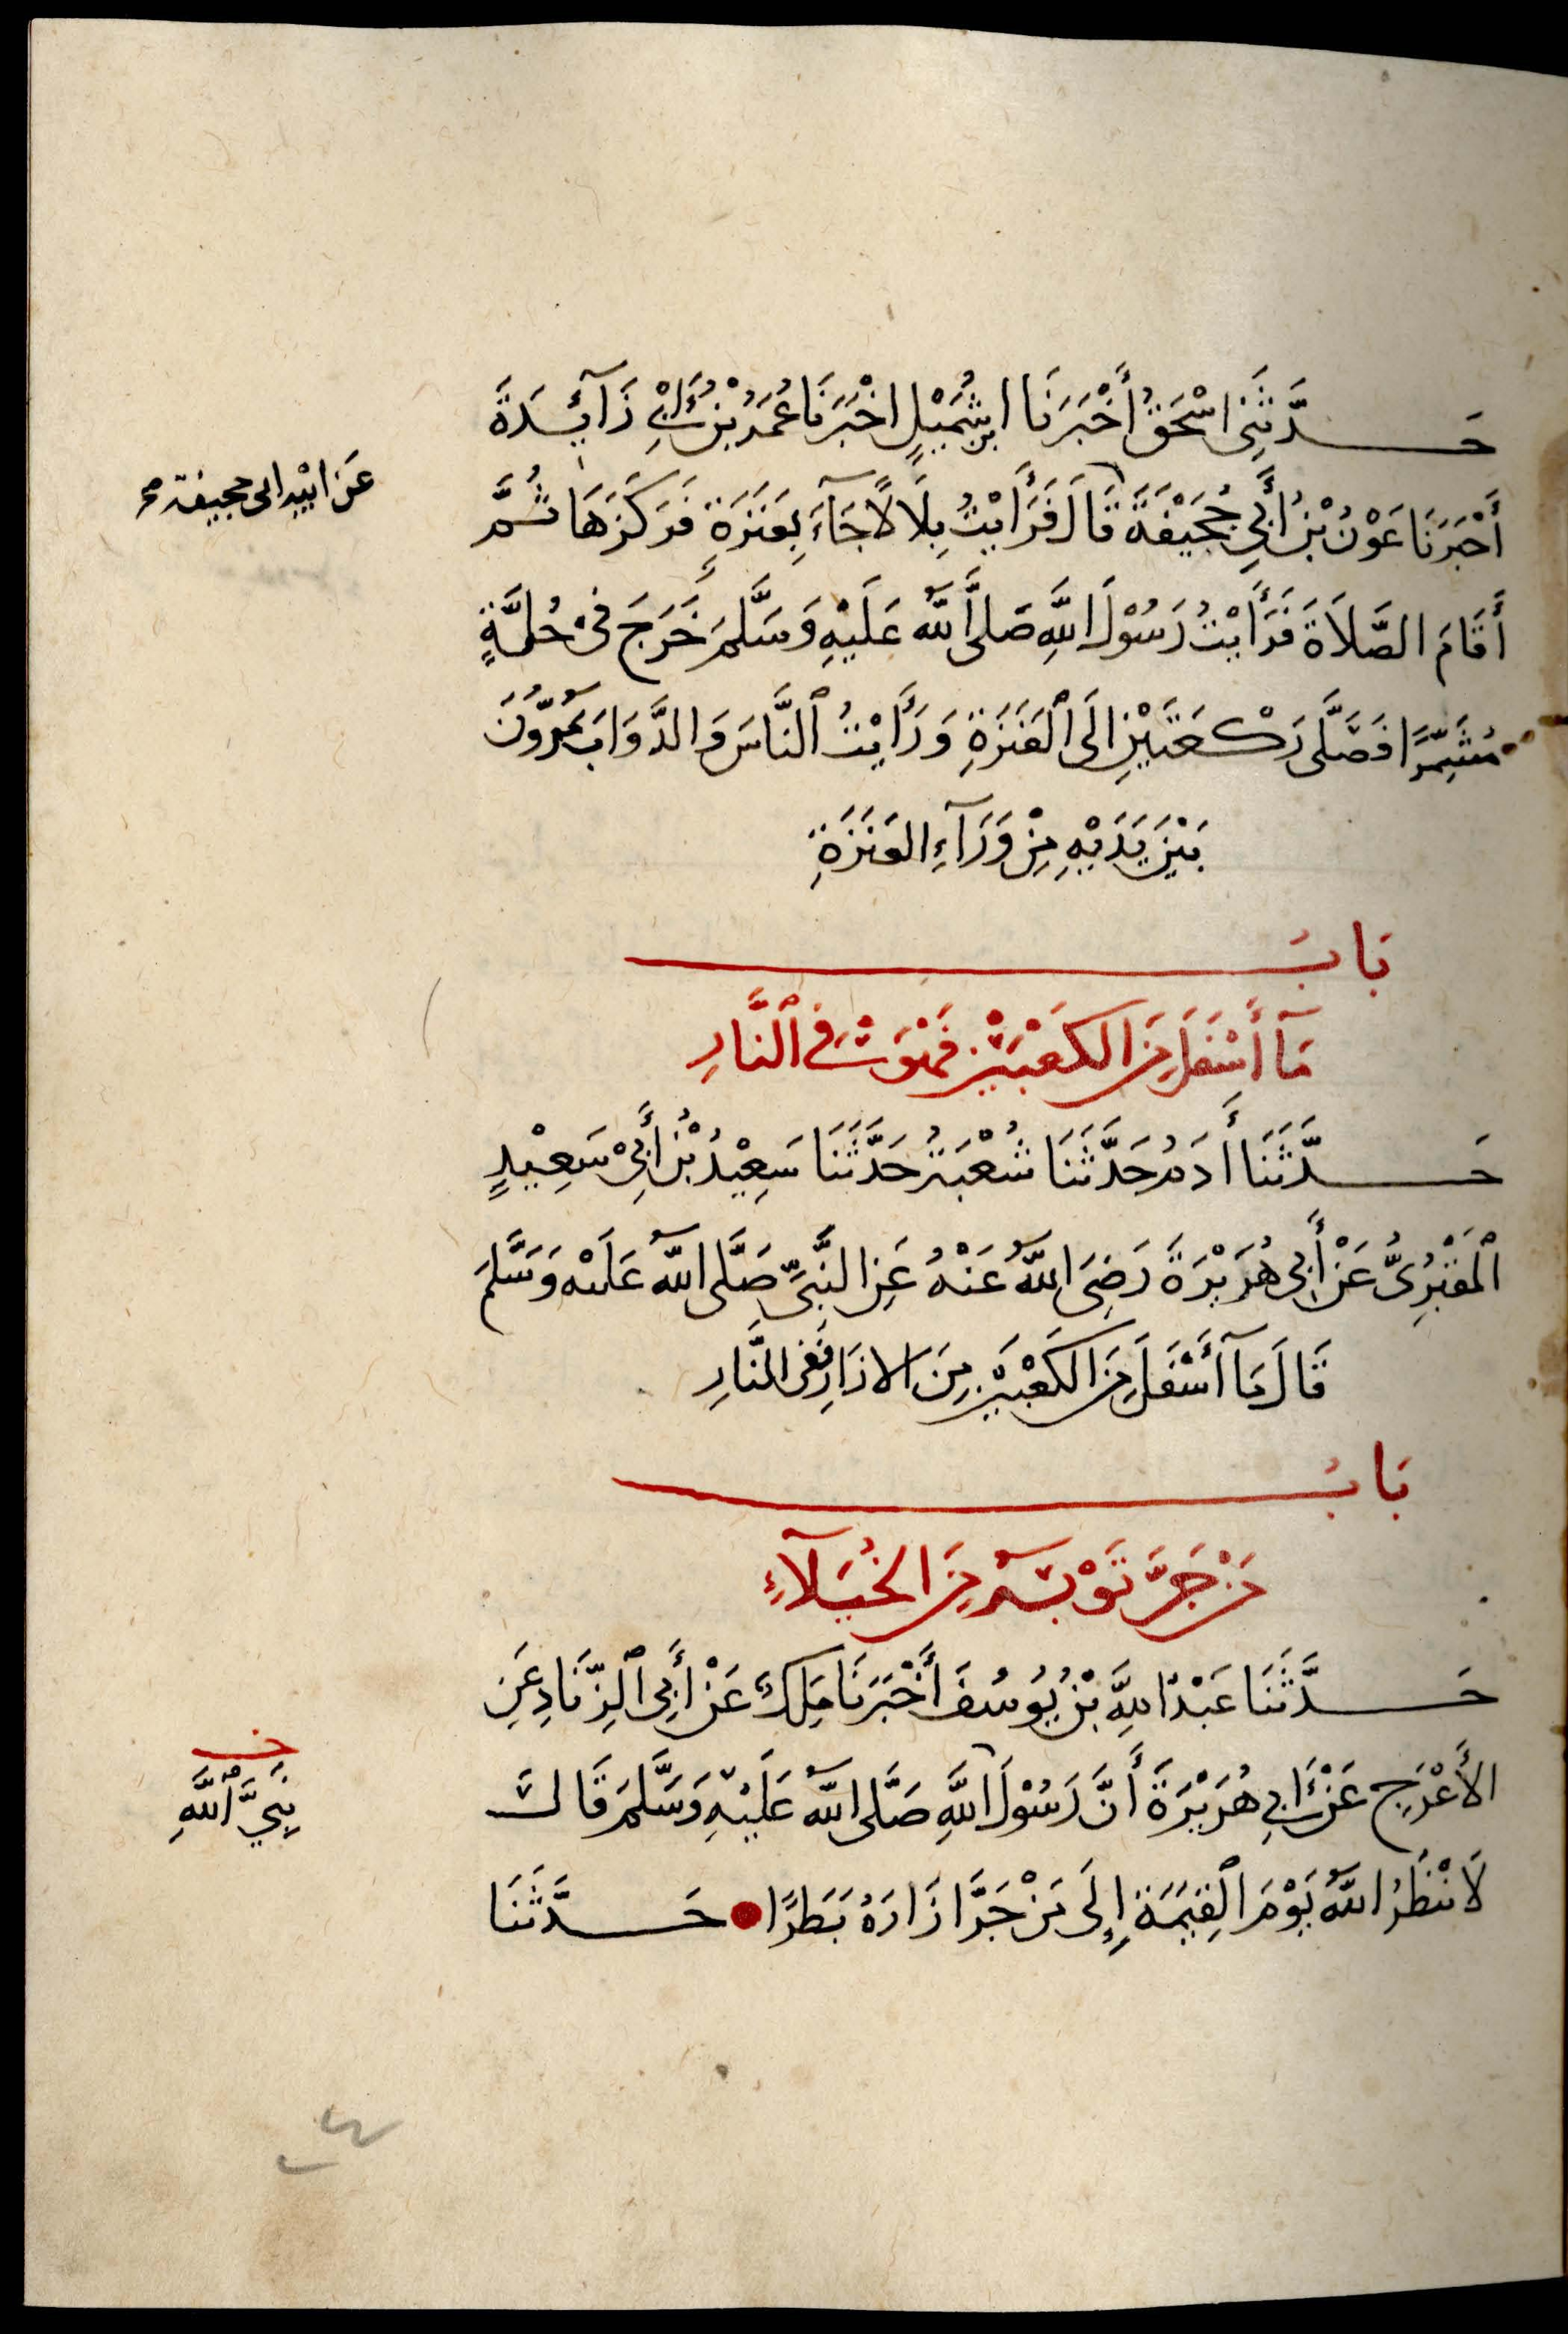 حَدَّثَنِى اسْحَقُ أَخْبَرَنَا ابن شُمَيْلٍ اخْبَرَنَا عُمَرُ بْنُ أَبِىْ زَآئِدَةَ
أَخْبَرَنَا عَوْنُ بْنُ أَبِي جُحَيْفَةَ قَالَ فَرَأَيْتُ بِلَالًا جَآءَ بِعَنَزَةٍ فَرَكَزَهَا ثُمَّ
عَن ابيْه ابى جحيفة صح
أَقَامَ الصَّلَاةَ فَرَأَيْتُ رَسُوْلَ اللَّهِ صَلَّى اللَّهُ عَلَيْهِ وَسَلَّمَ خَرَجَ فِىْ حُلَّةٍ
مُشَمِّرًا فَصَلَّى رَكْعَتَيْنِ الَى ٱلْعَنَزَةِ وَرَأَيْتُ ٱلنَّاسَ وَالدَّوَابَّ يَمُرُّوْنَ
بَيْنَ يَدَيْهِ مِنْ وَرَآءِ العَنَزَةِ
بَابُ
مَآ أَسْفَلَ مِنَ الكَعْبَيْنِ فَهْوَ فِى ٱلنَّارِ
حَدَّثَنَا أدَمُ حَدَّثَنَا شُعْبَةُ حَدَّثَنَا سَعِيْدُ بْنُ أَبِىْ سَعِيْدٍ
ٱلْمَقْبُرِىُّ عَنْ أَبِى هُرَيْرَةَ رَضِىَ اللَّهُ عَنْهُ عَنِ النَّبِىِّ صَلَّى اللَّهُ عَلَيْهِ وَسَلَّمَ
قَالَ مَآ أَسْفَلَ مِنَ الكَعْبَيْنِ مِنَ الازَارِ فَفِى النَّارِ
بَابُ
مَنْ جَرَّ ثَوْبَهُ مِنَ الخُيَلَآءِ
حَدَّثَنَا عَبْدُ اللَّهِ بْنُ يُوسُفَ أَخْبَرَنَا مَلِكٌ عَنْ أَبِى ٱلزِّنَادِ عَنِ
الأَعْرَجِ عَنْ أَبِي هُرَيْرَةَ أَنَّ رَسُوْلَ اللَّهِ صَلَّى اللَّهُ عَلَيْهِ وَسَلَّمَ قَالَ
نَبِيَّ ٱللَّهِ
لَا يَنْظُرُ اللَّهُ يَوْمَ ٱلْقِيَمَةِ إِلَى مَنْ جَرَّ ازَارَهُ بَطَرًا حَدَّثَنَا